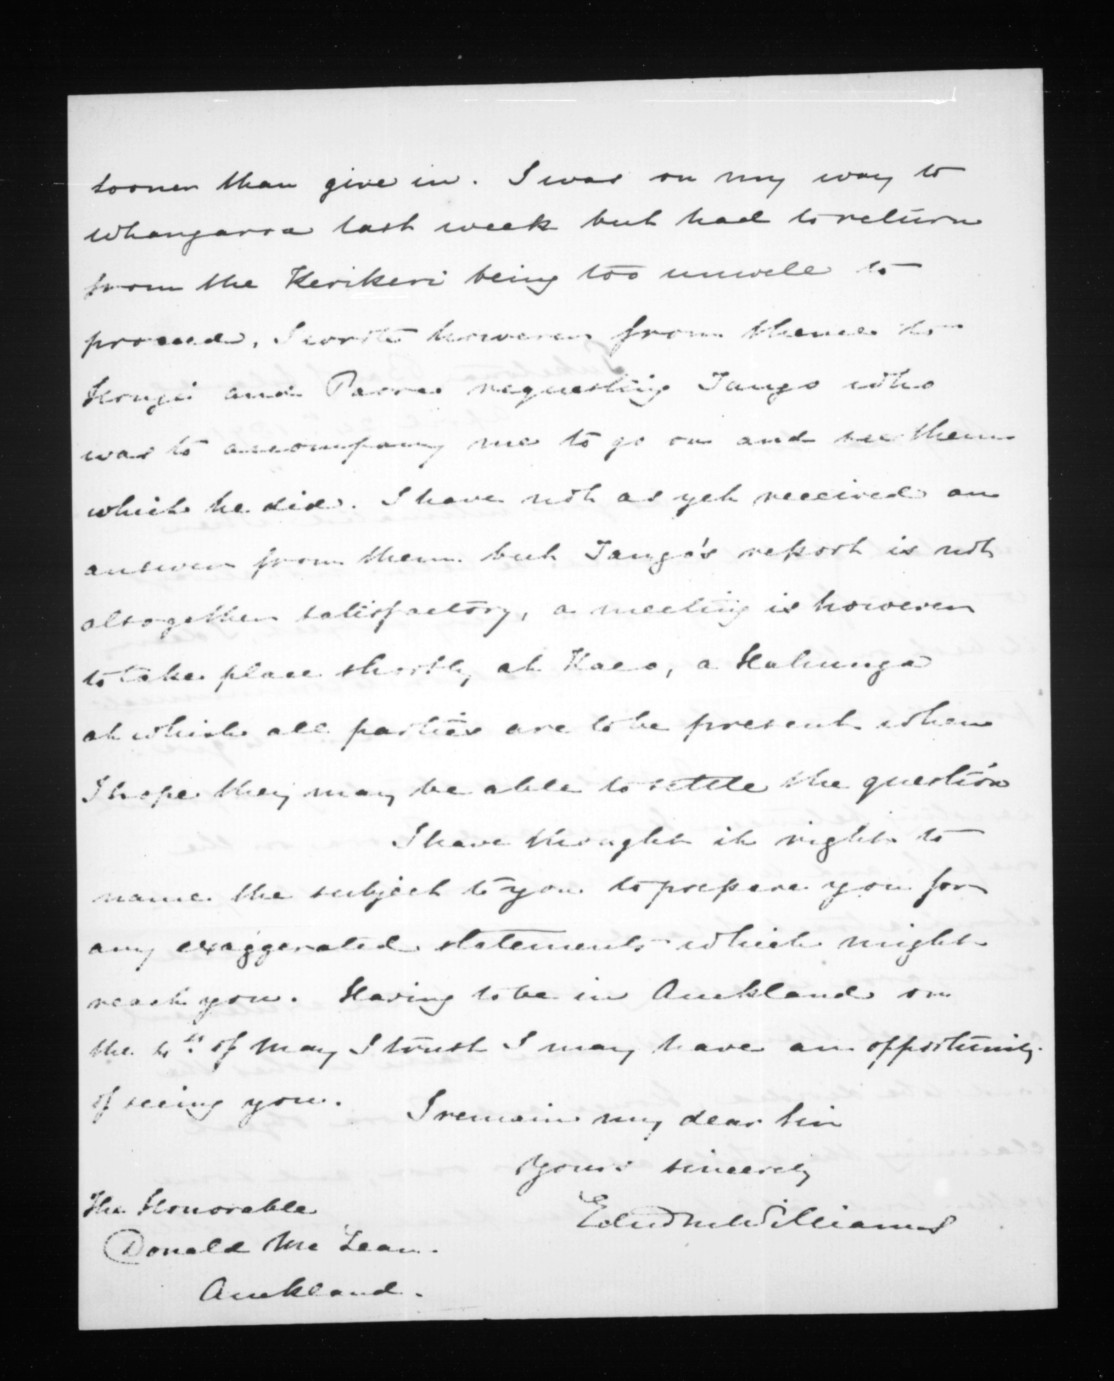 sooner than give in. I was on my way to
Whangaroa last week but had to return
from the Kerikeri being too unwell to
proceed, I wrote however from thence to
Hongi and Paora requesting Tango who
was to accompany me to go on and see them
which he did. I have not as yet received an
answer from them but Tango's report is not
altogether satisfactory, a meeting is however
to take place shortly at Kaeo, a Hahunga
at which all parties are to be present when
I hope they may be able to settle the question
I have thought it right to
name the subject to you to prepare you for
any exaggerated statements which might
reach you. Having to be in Auckland on
the 4th of May I trust I may have an opportunity
of seeing you.
I remain my dear Sir
Yours sincerely
Edw M Williams
The Honorable
Donald McLean.
Auckland.